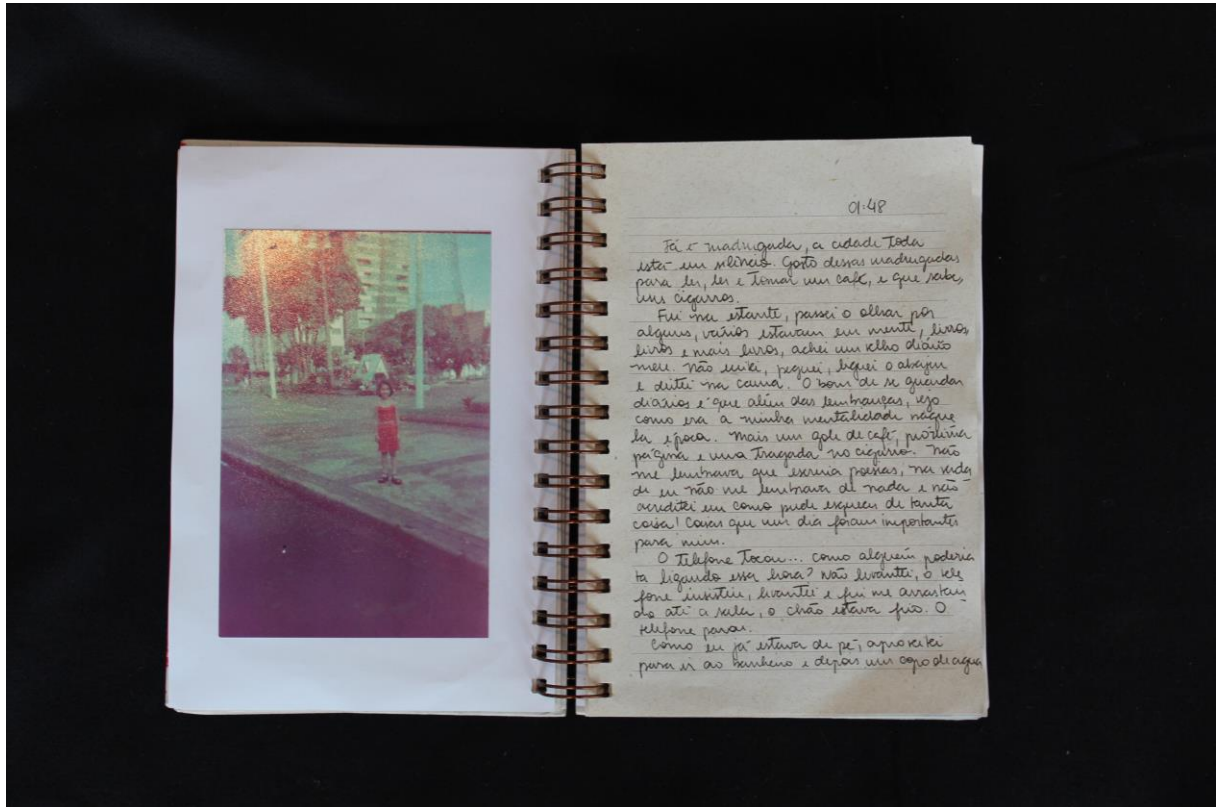 01:48
Já é madrugada, a cidade toda
está em silêncio. Gosto dessas madrugadas
para ler, ler e tomar um café, e que sabe,
uns cigarros.
Fui na estante, passei o olhar por
alguns, vários estavam em mente, livros
livros e mais livros, achei um velho diário
meu. Não exitei, peguei, liguei o abajur
e deitei na cama. O bom de se guardar
diários é que além das lembranças, vejo
como era a minha mentalidade naque
la época. Mais um gole de café, próxima
página e uma tragada no cigarro. Não
me lembrava que escrevia poesias, na verda
de eu não me lembrava de nada e não
acreditei em como pude esquecer de tanta
coisa! Coisas que um dia foram importantes
para mim.
O telefone tocou... como alguém poderia
ta ligando essa hora? Não levantei, o tele
fone insistiu, levantei e fui me arrastan
do até a sala, o chão estava frio. O
telefone parou.
Como eu já estava de pé, aproveitei
para ir ao banheiro e depois um copo de agua